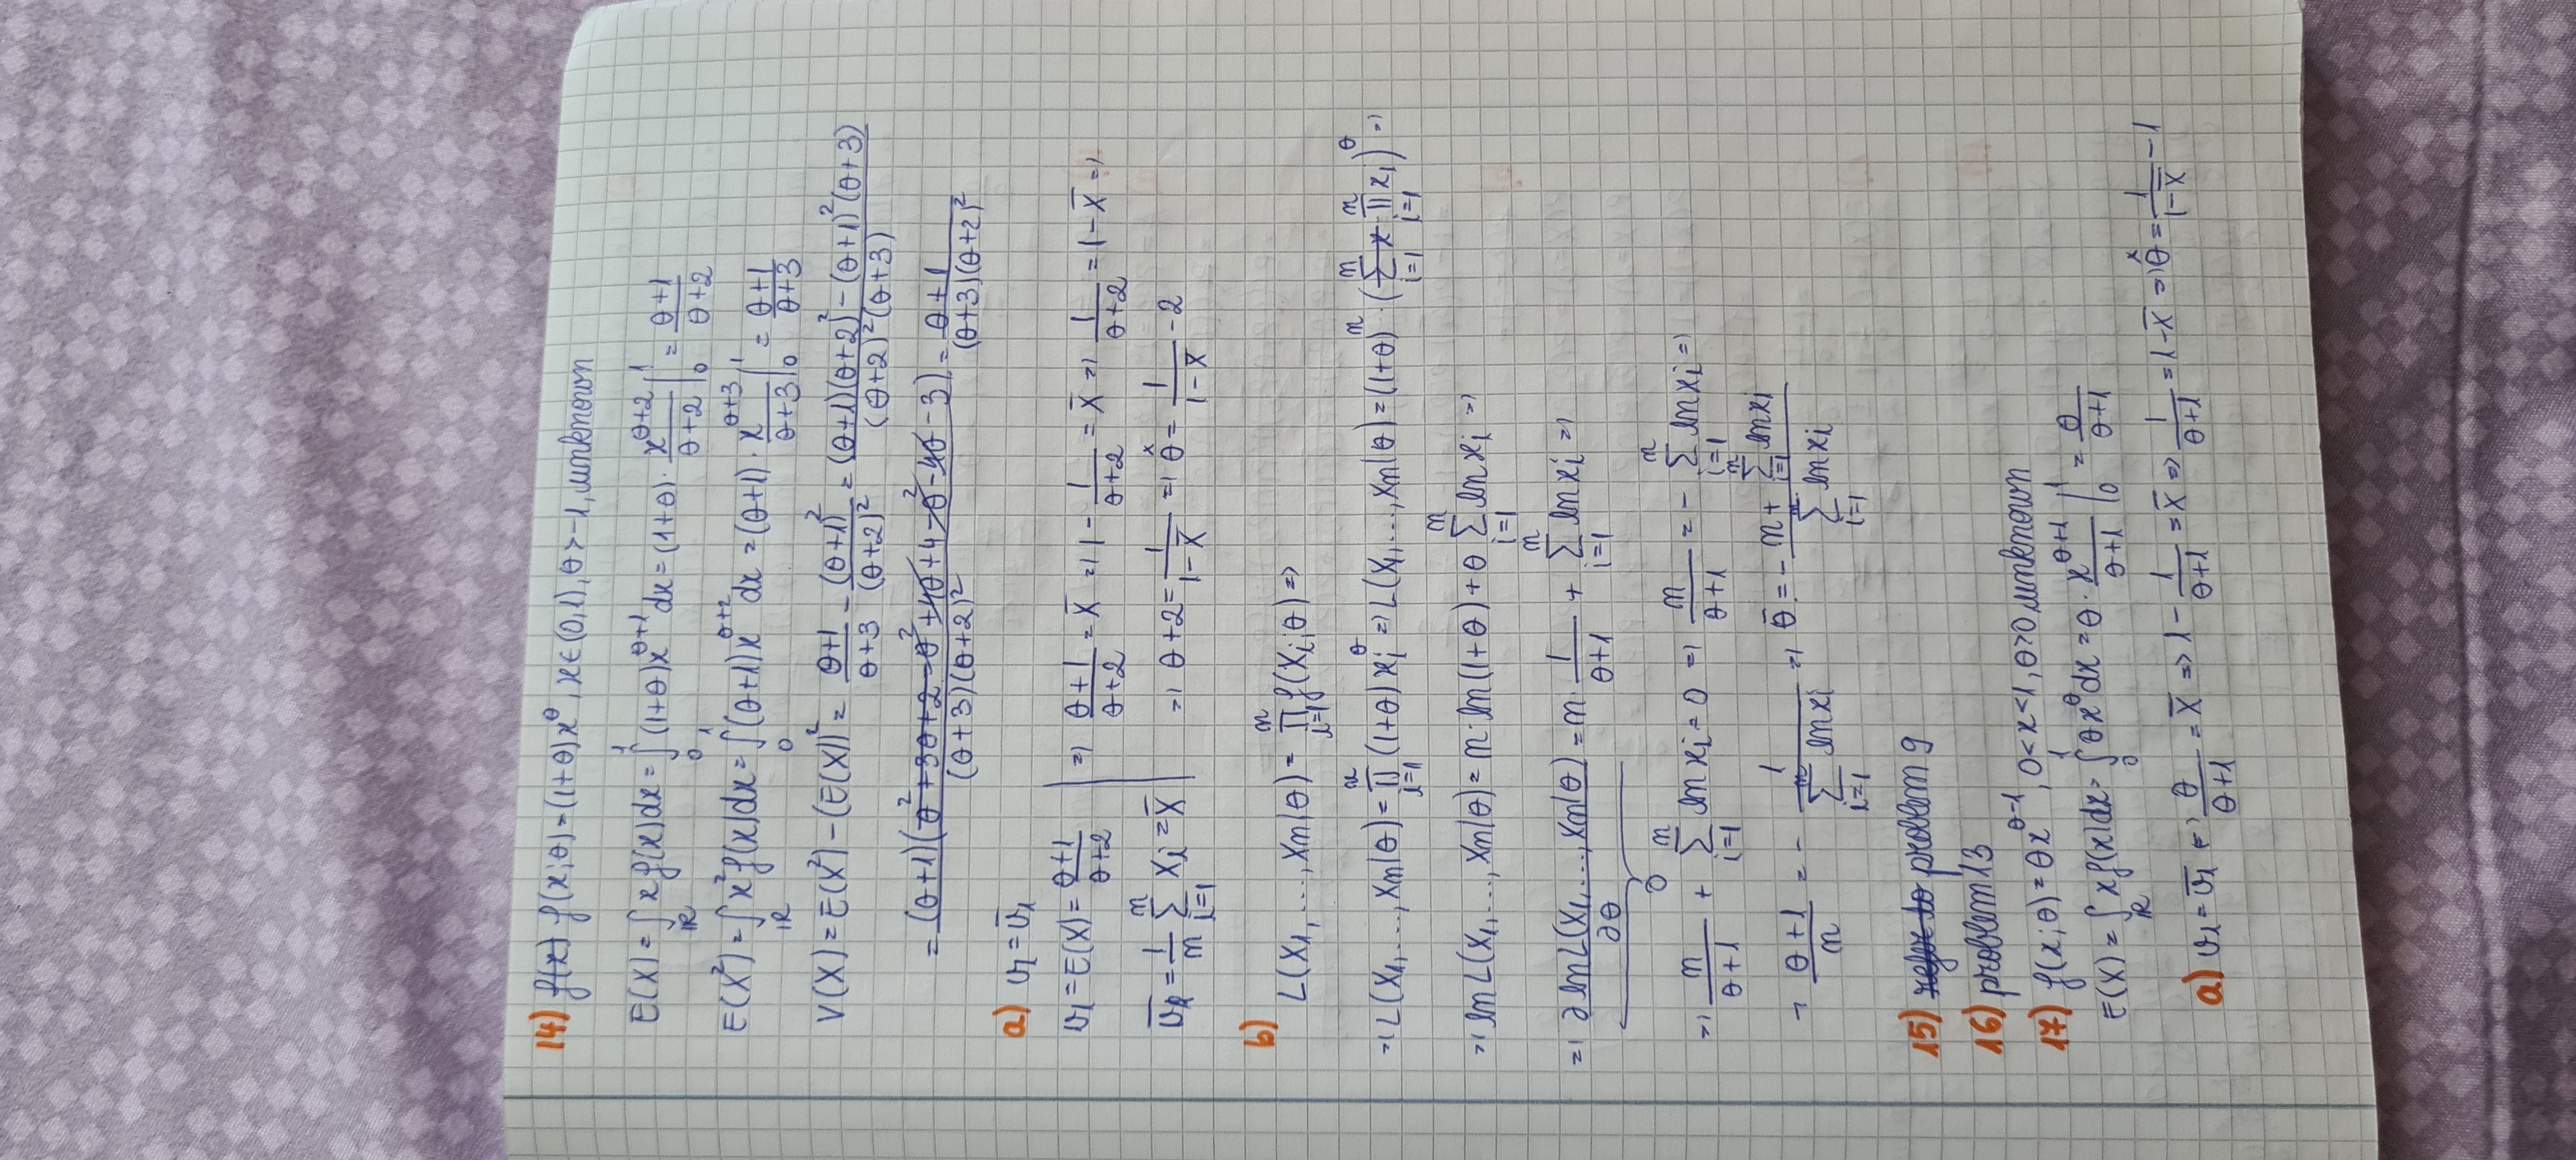 14) f(x) f(x;θ)=(1+θ)x^θ, x∈(0,1), θ>-1, unknown
E(X)=∫_ℝ x f(x)dx=∫_0^1 (1+θ)x^{θ+1}dx=(1+θ)·x^{θ+2}/(θ+2)|_0^1=(θ+1)/(θ+2)
E(X²)=∫_ℝ x²f(x)dx=∫_0^1 (θ+1)x^{θ+2}dx=(θ+1)·x^{θ+3}/(θ+3)|_0^1=(θ+1)/(θ+3)
V(X)=E(X²)-(E(X))²=(θ+1)/(θ+3)-(θ+1)²/(θ+2)²=((θ+1)(θ+2)²-(θ+1)²(θ+3))/((θ+2)²(θ+3))
=(θ+1)(θ²+3θ+2-θ²+4θ+4-θ²-4θ-3)/((θ+3)(θ+2)²)=(θ+1)/((θ+3)(θ+2)²)
a) ν₁=ν̄₁
ν₁=E(X)=(θ+1)/(θ+2) | => (θ+1)/(θ+2)=X̄ => 1-1/(θ+2)=X̄ => 1/(θ+2)=1-X̄ =>
ν̄₁=1/n ∑_{i=1}^n Xi=X̄ | => θ+2=1/(1-X̄) => θ̂=1/(1-X̄)-2
b)
L(X₁,...,Xn|θ)=∏_{i=1}^n f(Xi;θ) =>
=> L(X₁,...,Xn|θ)=∏_{i=1}^n (1+θ)xi^θ => L(X₁,...,Xn|θ)=(1+θ)^n·(∑_{i=1}^n x ∏_{i=1}^n xi)^θ =>
=> ln L(X₁,...,Xn|θ)=n·ln(1+θ)+θ ∑_{i=1}^n ln xi =>
=> ∂ ln L(X₁,...,Xn|θ)/∂θ=n·1/(θ+1)+∑_{i=1}^n ln xi =>
0
=> n/(θ+1)+∑_{i=1}^n ln xi=0 => n/(θ+1)=-∑_{i=1}^n ln xi =>
=> (θ+1)/n=-1/(∑_{i=1}^n ln xi) => θ̄=-(n+∑_{i=1}^n ln xi)/(∑_{i=1}^n ln xi)
15) refer to problem 9
16) problem 13
17) f(x;θ)=θx^{θ-1}, 0<x<1, θ>0, unknown
E(X)=∫_ℝ x f(x)dx=∫_0^1 θx^θdx=θ·x^{θ+1}/(θ+1)|_0^1=θ/(θ+1)
a) ν₁=ν̄₁ => θ/(θ+1)=X̄ => 1-1/(θ+1)=X̄ => 1/(θ+1)=1-X̄ => θ̂=1/(1-X̄)-1